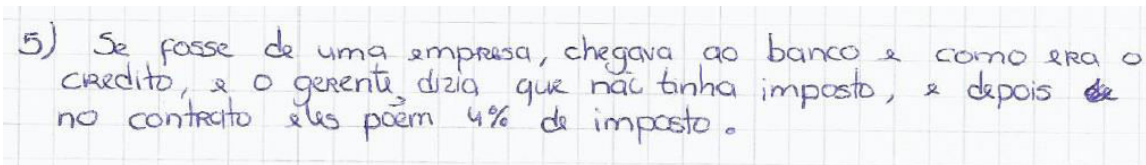 5) Se fosse de uma empresa, chegava ao banco e como era o
credito, e o gerente dizia que não tinha imposto, e depois
no contrato eles poêm 4% de imposto.